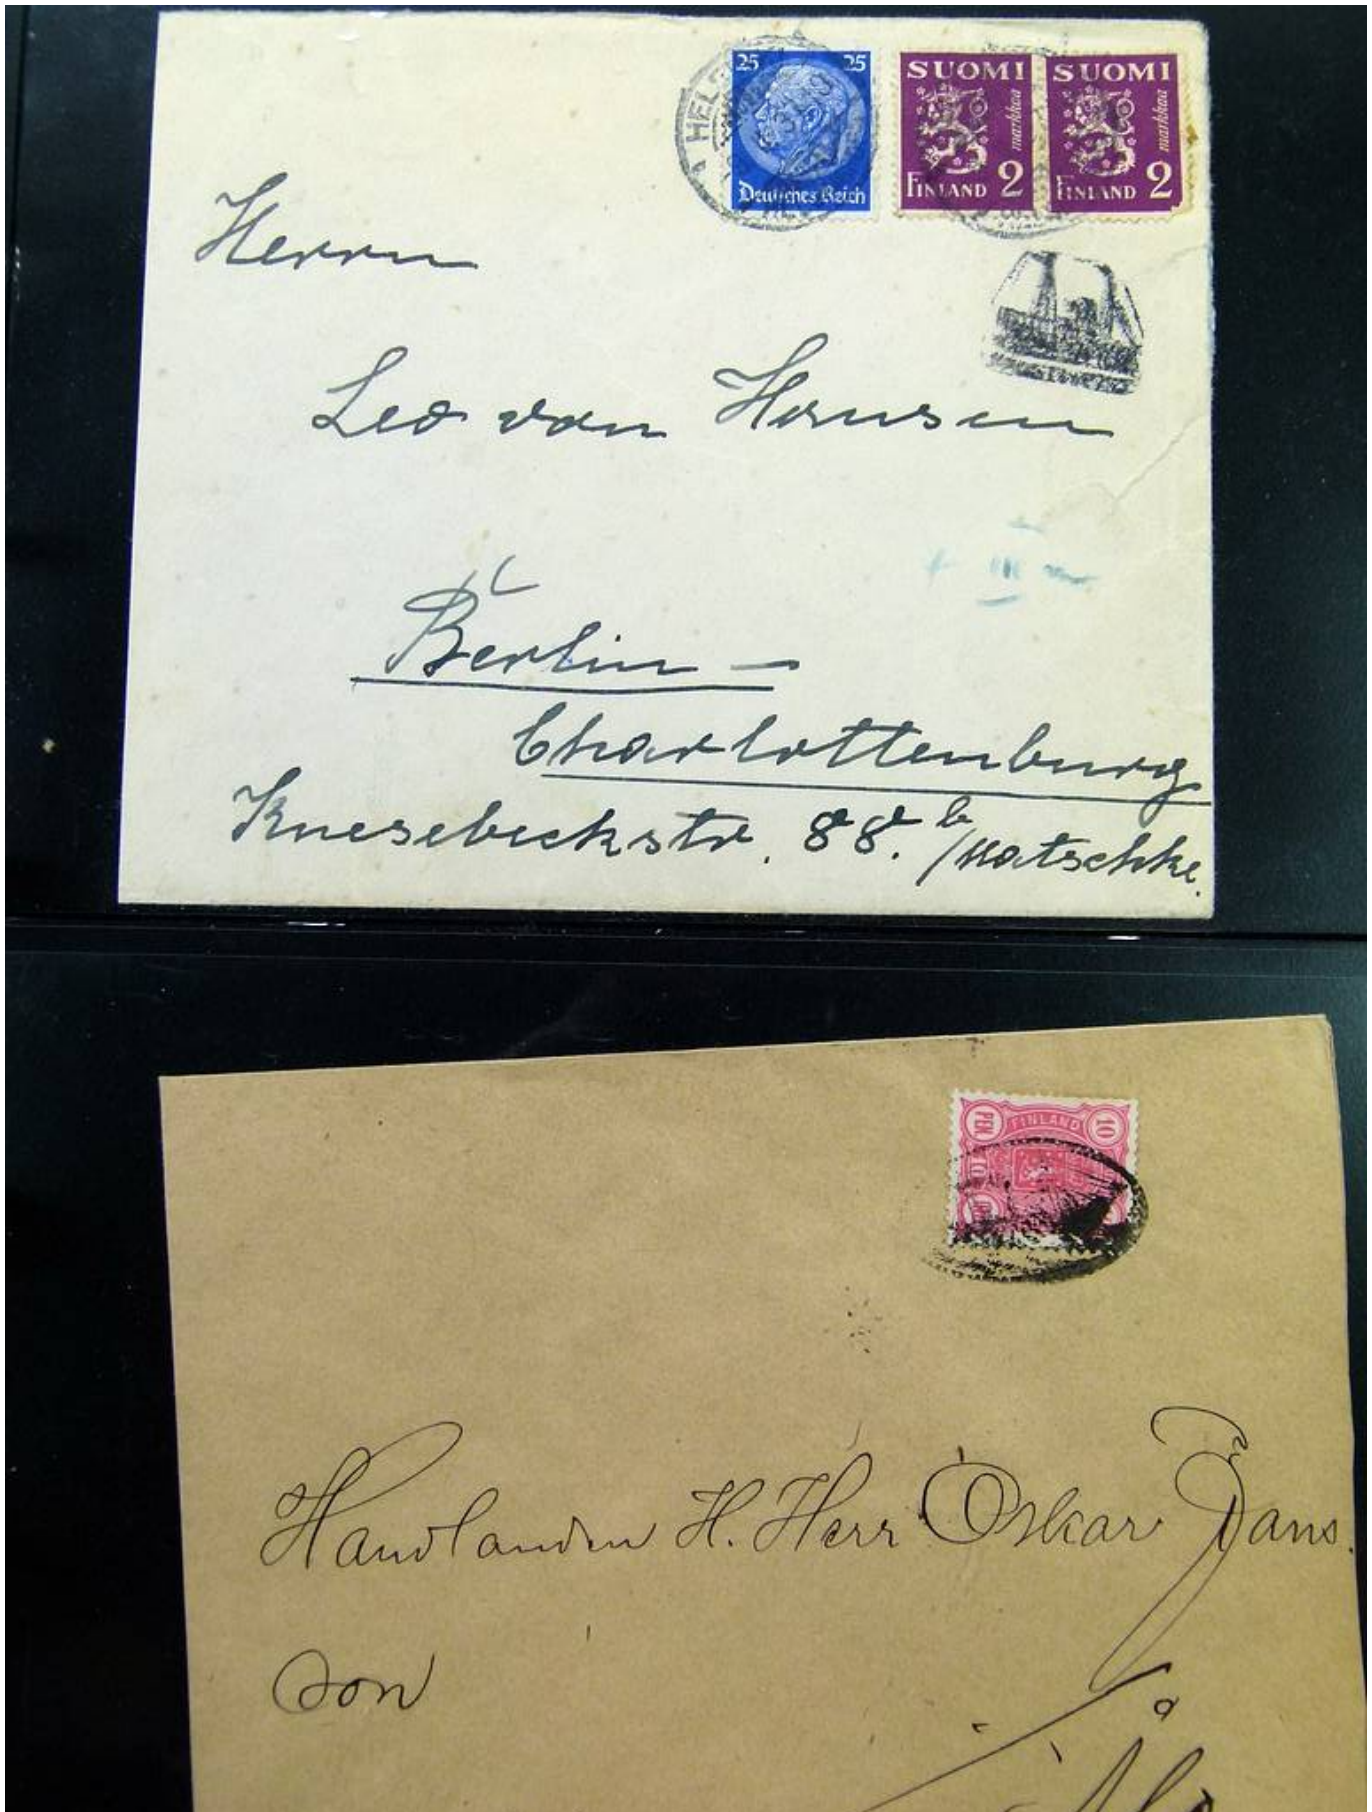 25 25
Deutsches Reich
SUOMI
markkaa
FINLAND 2
SUOMI
markkaa
FINLAND 2
HEL
Herrn
Leo van Hensen
Berlin -
Charlottenburg
Knesebeckstr. 88. b/Matschke.
PEN FINLAND 10
10
Handlanden H. Herr Oskar Jans.
son